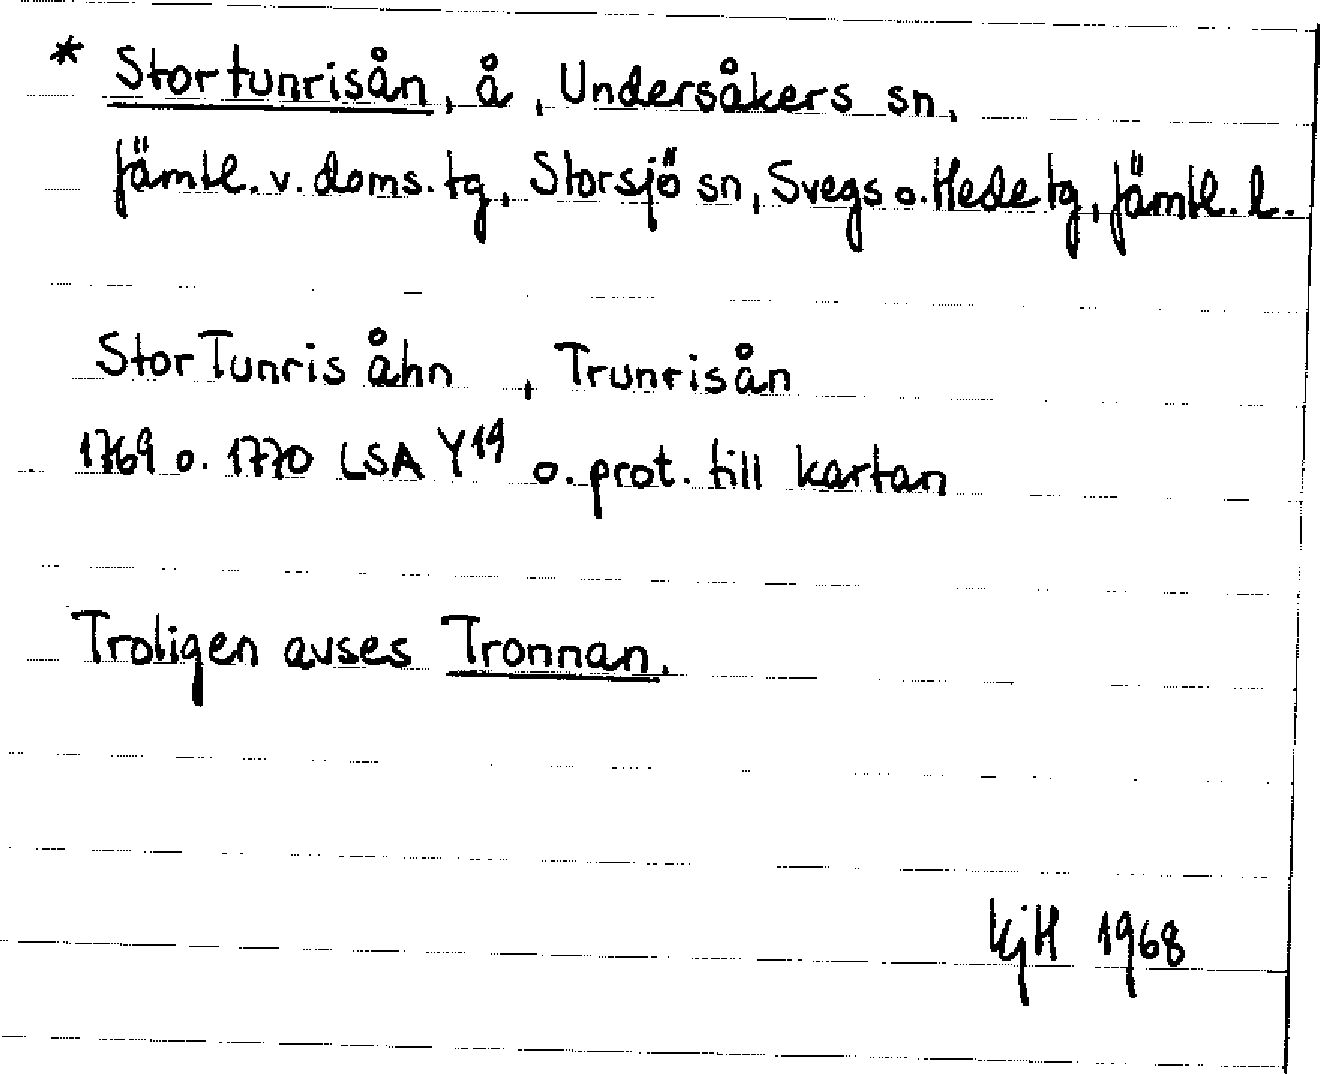 * Stortunrisån, å, Undersåkers sn,
Jämtl. v. doms. tg, Storsjö sn, Svegs o. Hede tg, Jämtl. l.
Stor Tunris åhn , Trunrisån
1769 o. 1770 LSA Y19 o. prot. till kartan
Troligen avses Tronnan.
KjH 1968